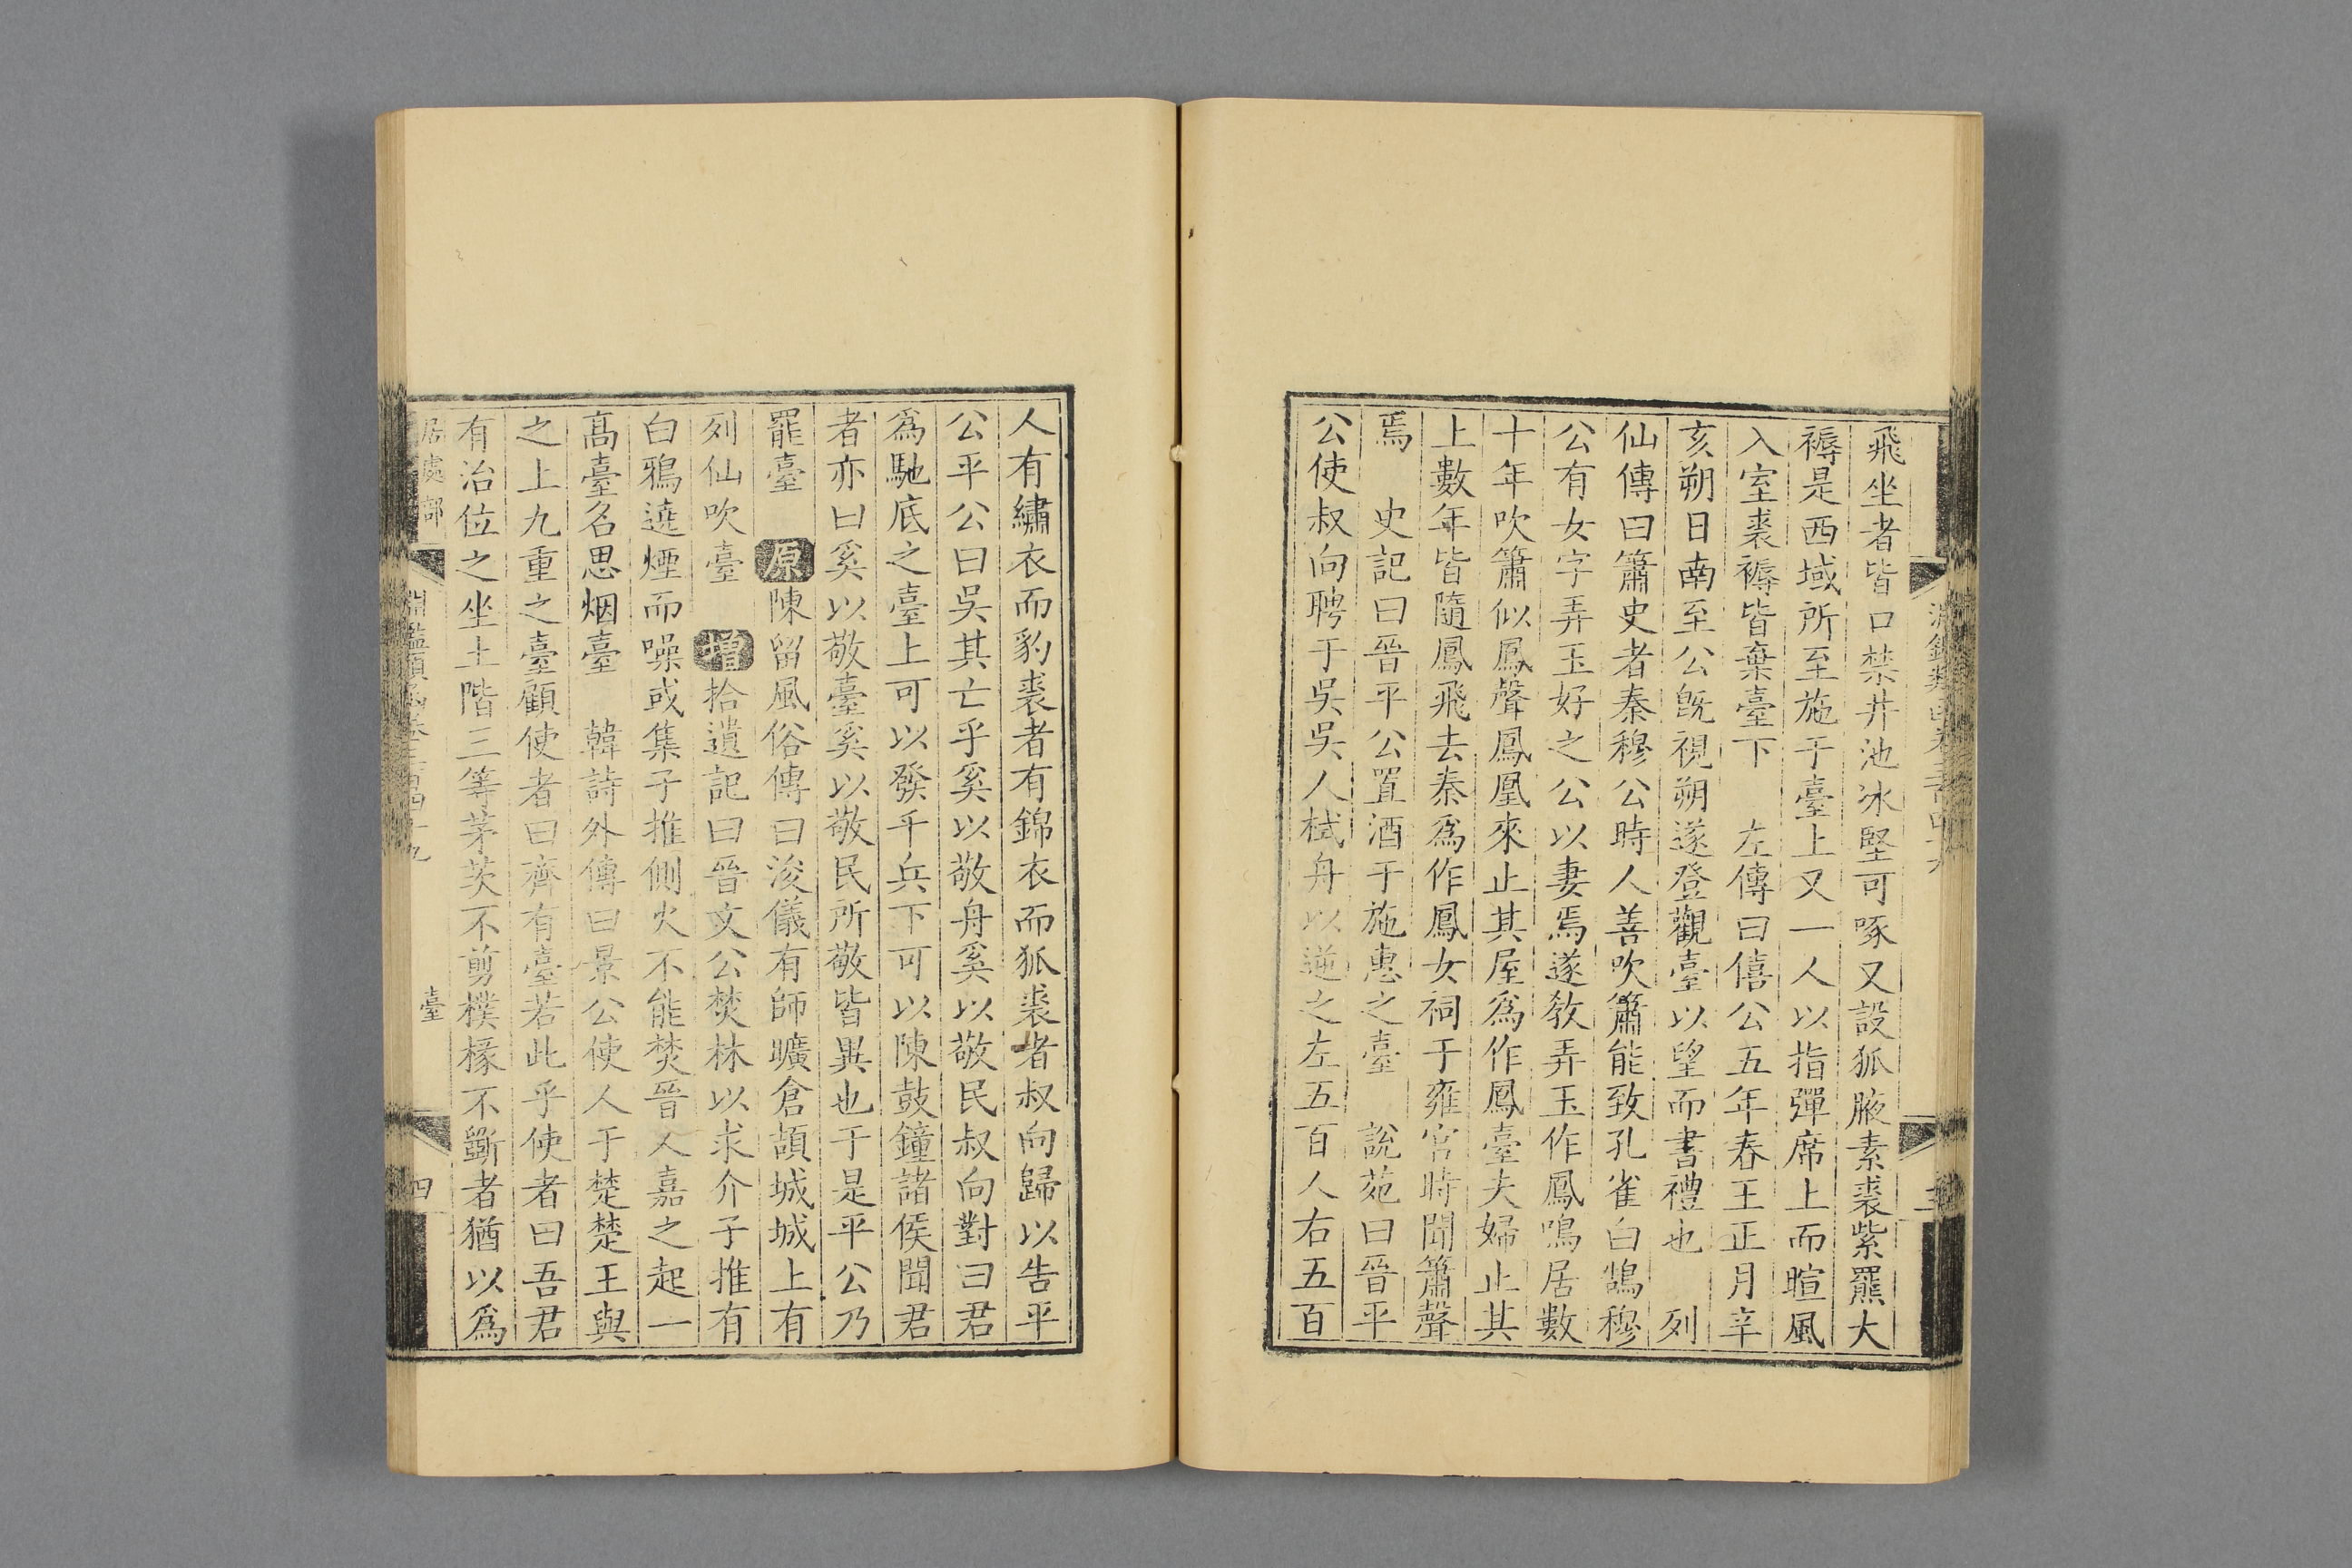 飛坐者皆口禁井池冰堅可啄又設狐腋素裘紫羆大
褥是西域所至施于臺上又一人以指彈席上而暄風
入室裘褥皆棄臺下　左傳曰僖公五年春王正月辛
亥朔日南至公旣視朔遂登觀臺以望而書禮也　列
仙傳曰簫史者秦穆公時人善吹簫能致孔雀白鵠穆
公有女字弄玉好之公以妻焉遂教弄玉作鳳鳴居數
十年吹簫似鳳聲鳳凰來止其屋爲作鳳臺夫婦止其
上數年皆隨鳳飛去秦爲作鳳女祠于雍宮時聞簫聲
焉　史記曰晉平公置酒于施惠之臺　說苑曰晉平
公使叔向聘于吳吳人栻舟以逆之左五百人右五百
人有繡衣而豹裘者有錦衣而狐裘者叔向歸以告平
公平公曰吳其亡乎奚以敬舟奚以敬民叔向對曰君
爲馳底之臺上可以發千兵下可以陳鼓鐘諸侯聞君
者亦曰奚以敬臺奚以敬民所敬皆異也于是平公乃
罷臺　原陳留風俗傳曰浚儀有師曠倉頡城城上有
列仙吹臺　增拾遺記曰晉文公焚林以求介子推有
白鴉遶煙而噪或集子推側火不能焚晉人嘉之起一
高臺名思烟臺　韓詩外傳曰景公使人于楚楚王與
之上九重之臺顧使者曰齊有臺若此乎使者曰吾君
有治位之坐土階三等茅茨不剪樸椽不斲者猶以爲
居處部
淵鑑類函卷三百四十九
臺
四